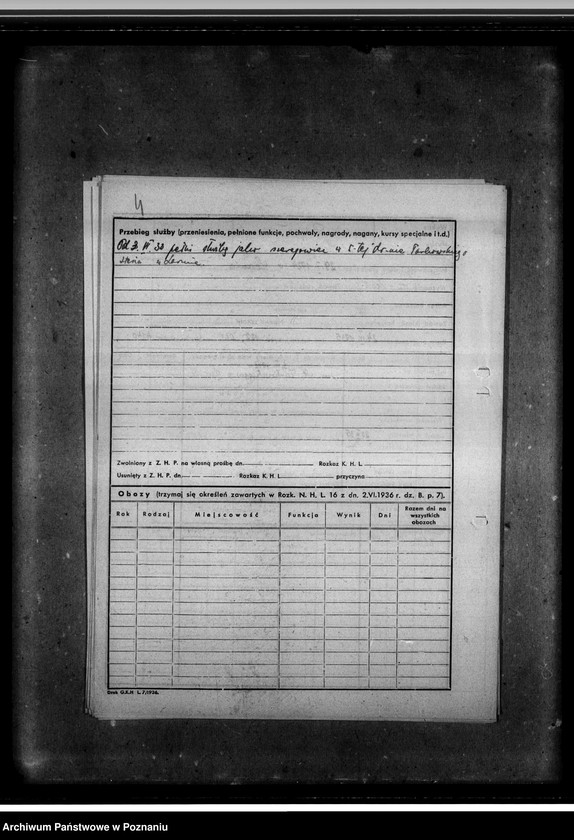 4
Przebieg służby (przeniesienia, pełnione funkcje, pochwały, nagrody, nagany, kursy specjalne i t.d.)
Od 3. 38 pełni służbę jako w 5-tej
Zwolniony z Z. H. P. na własną prośbę dn. Rozkaz K. H. L.
Usunięty z Z. H. P. dn. Rozkaz K. H. L. przyczyna
Obozy (trzymaj się określeń zawartych w Rozk. N. H. L. 16 z dn. 2.VI.1936 r. dz. B. p. 7).
Rok Rodzaj Miejscowość Funkcja Wynik Dni Razem dni na wszystkich obozach
Druk G.K.H L. 7/1936.
Archiwum Państwowe w Poznaniu